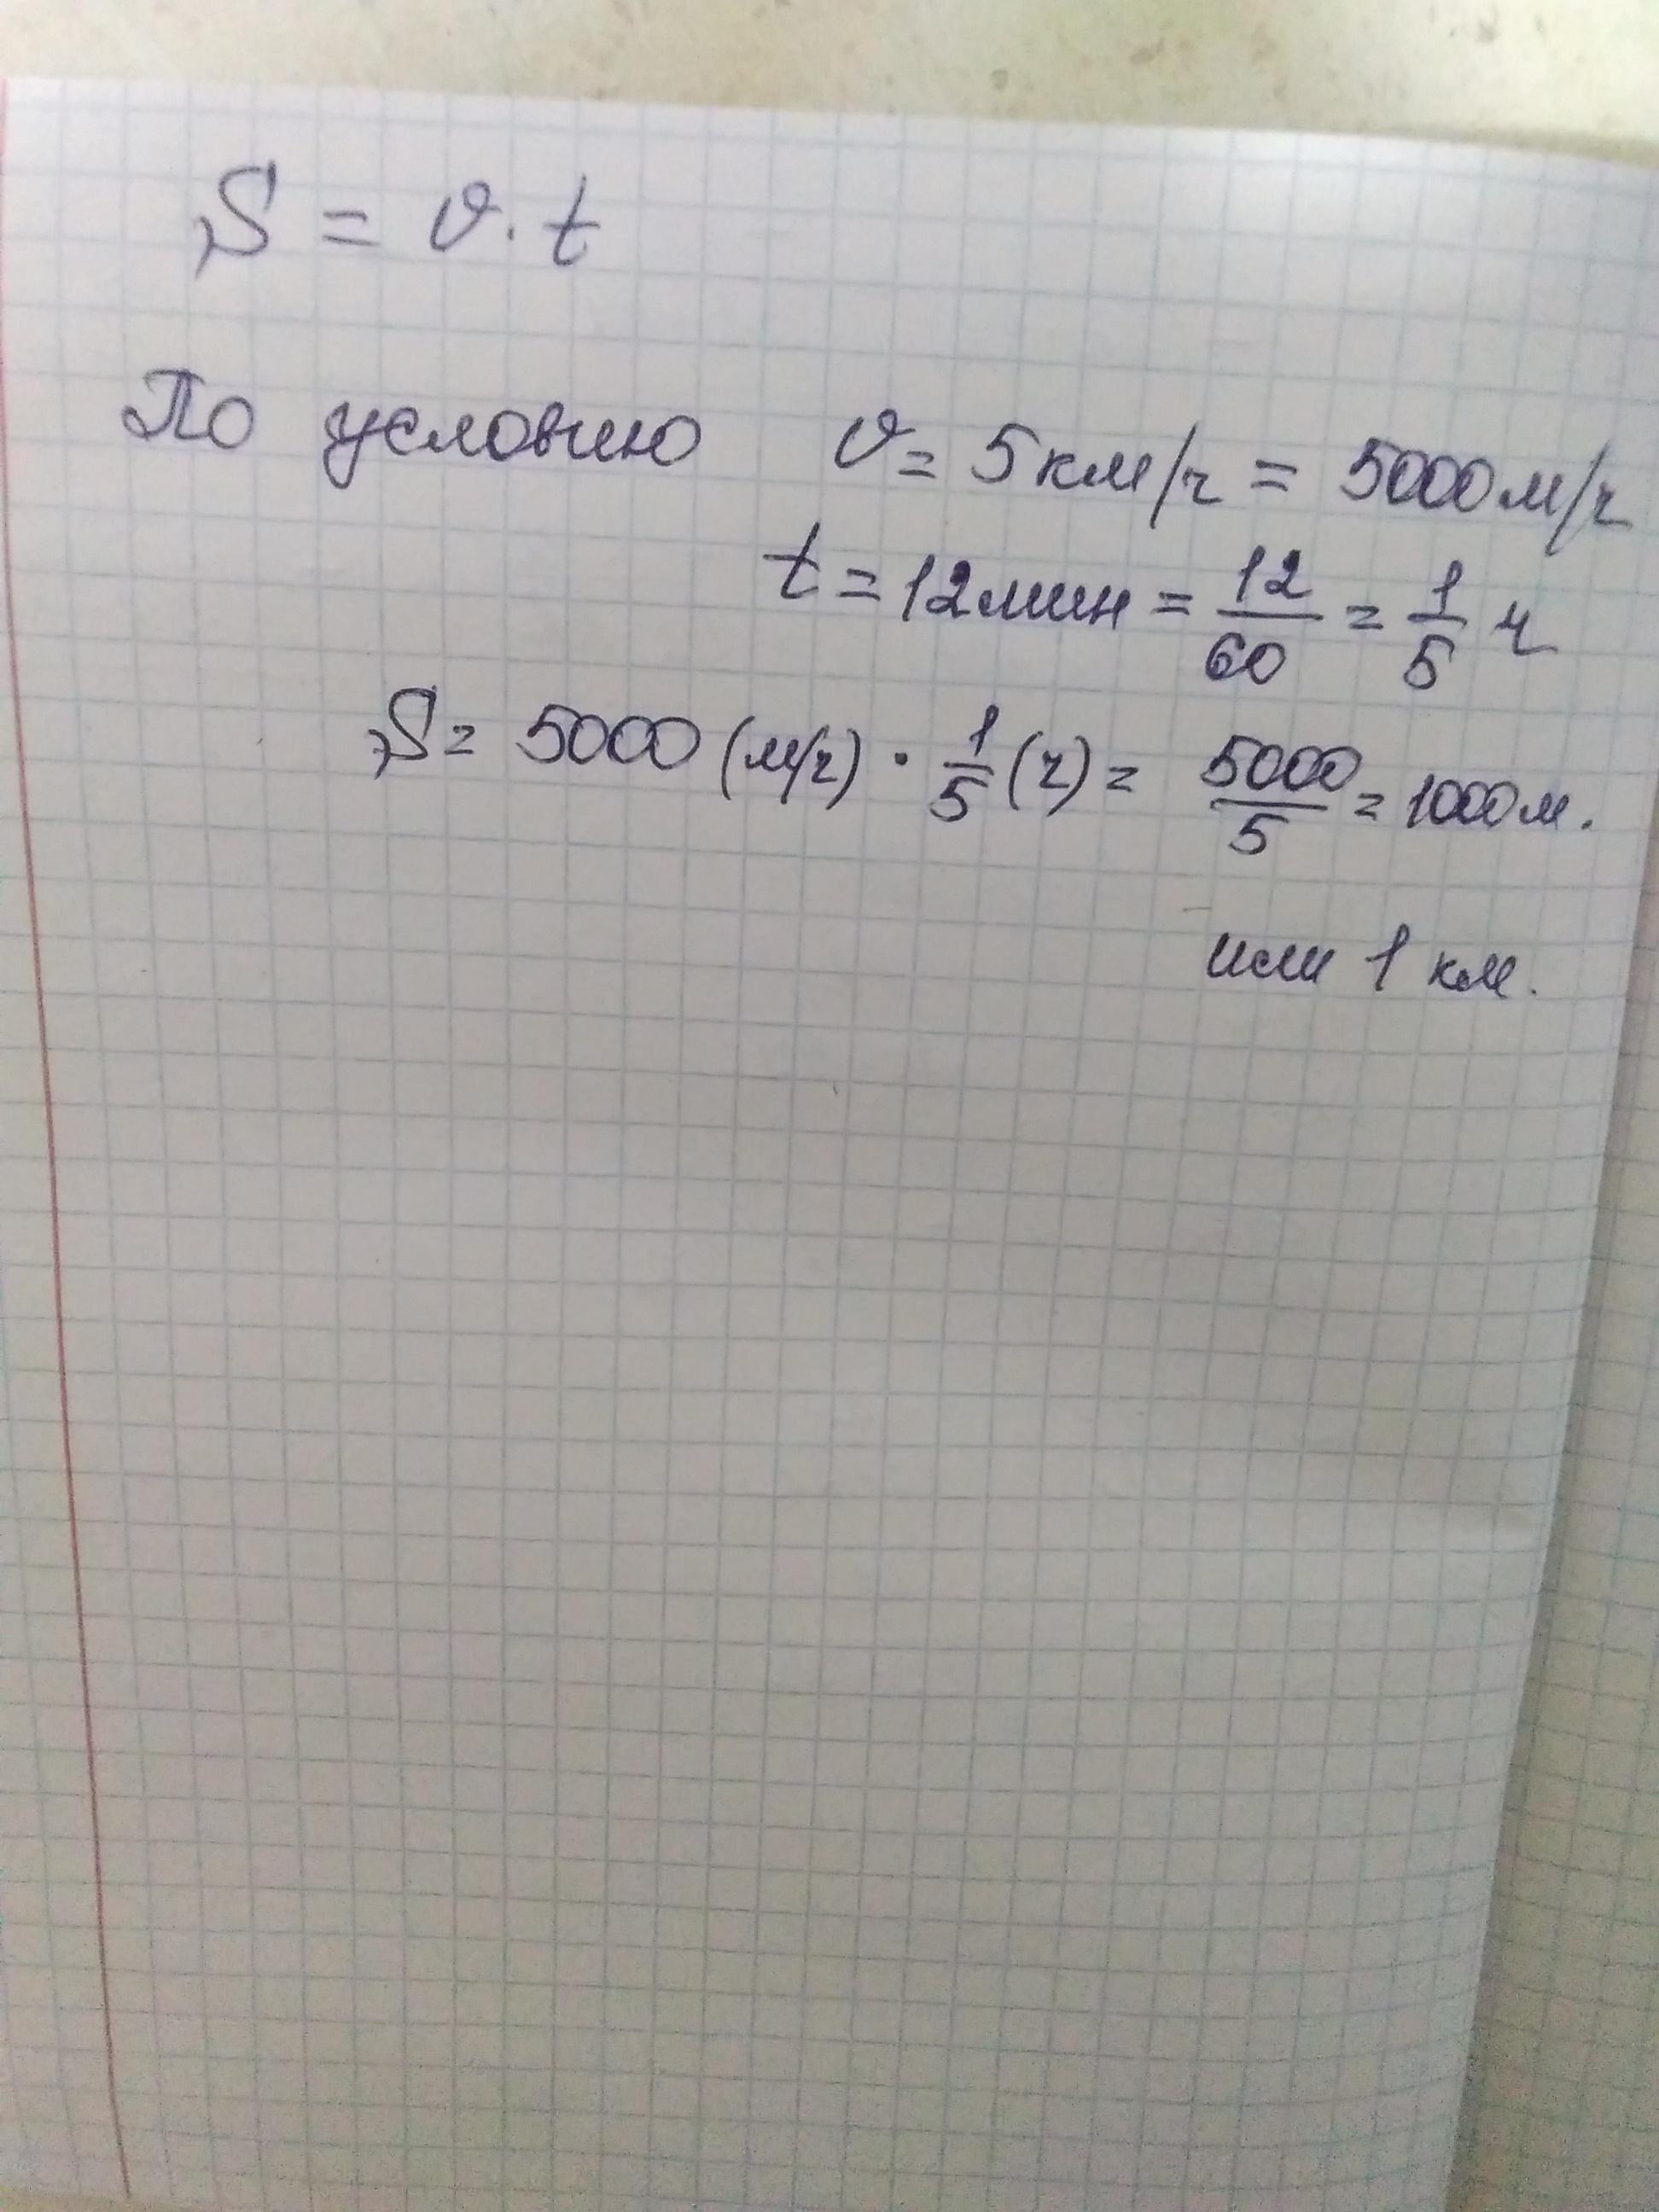 S = v · t
По условию v = 5 км/ч = 5000 м/ч
t = 12 мин = 12/60 = 1/5 ч
S = 5000 (м/ч) · 1/5 (ч) = 5000/5 = 1000 м.
или 1 км.